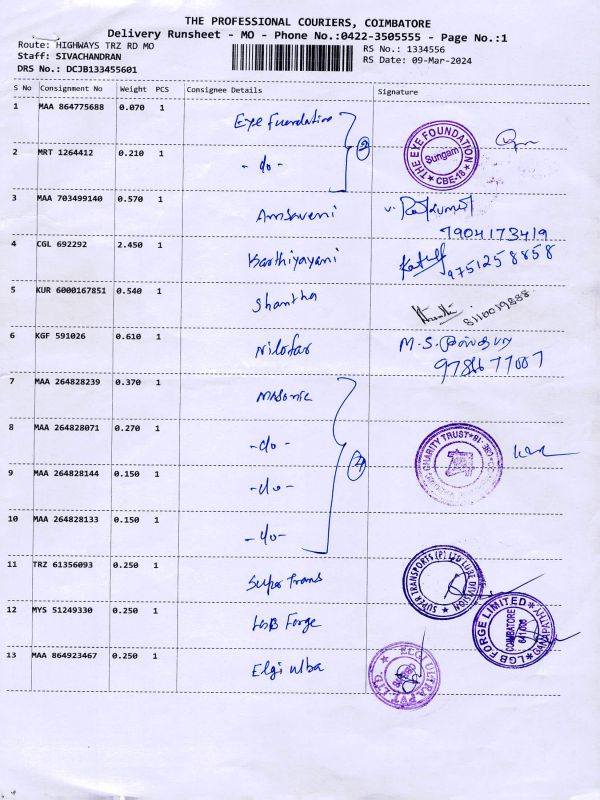 THE PROFESSIONAL COURIERS, COIMBATORE
Delivery Runsheet - MO - Phone No.:0422-3505555 - Page No.:1
Route: HIGHWAYS TRZ RD MO
Staff: SIVACHANDRAN
DRS No.: DCJB133455601
RS No.: 1334556
RS Date: 09-Mar-2024
S No Consignment No Weight PCS Consignee Details Signature
1 MAA 864775688 0.070 1 Eye Foundation
THE EYE FOUNDATION Sungam CBE-18
2 MRT 1264412 0.210 1 - do - 2
3 MAA 703499140 0.570 1
7904173419
4 CGL 692292 2.450 1 Karthiyayani
9751258858
5 KUR 6000167851 0.540 1 Shantha
8110019888
6 KGF 591026 0.610 1 Nilofar M.S.
7 MAA 264828239 0.370 1 Masonic
8 MAA 264828071 0.270 1 - do -
CHARITY TRUST
9 MAA 264828144 0.150 1 - do - 4
10 MAA 264828133 0.150 1 - do -
11 TRZ 61356093 0.250 1 Super trans
SUPER TRANSPORTS (P) LTD LUBE DIVISION
12 MYS 51249330 0.250 1 LGB Forge
LGB FORGE LIMITED COIMBATORE 641006
13 MAA 864923467 0.250 1 Elgi ulba
ELGI ULTRA PVT. LTD.